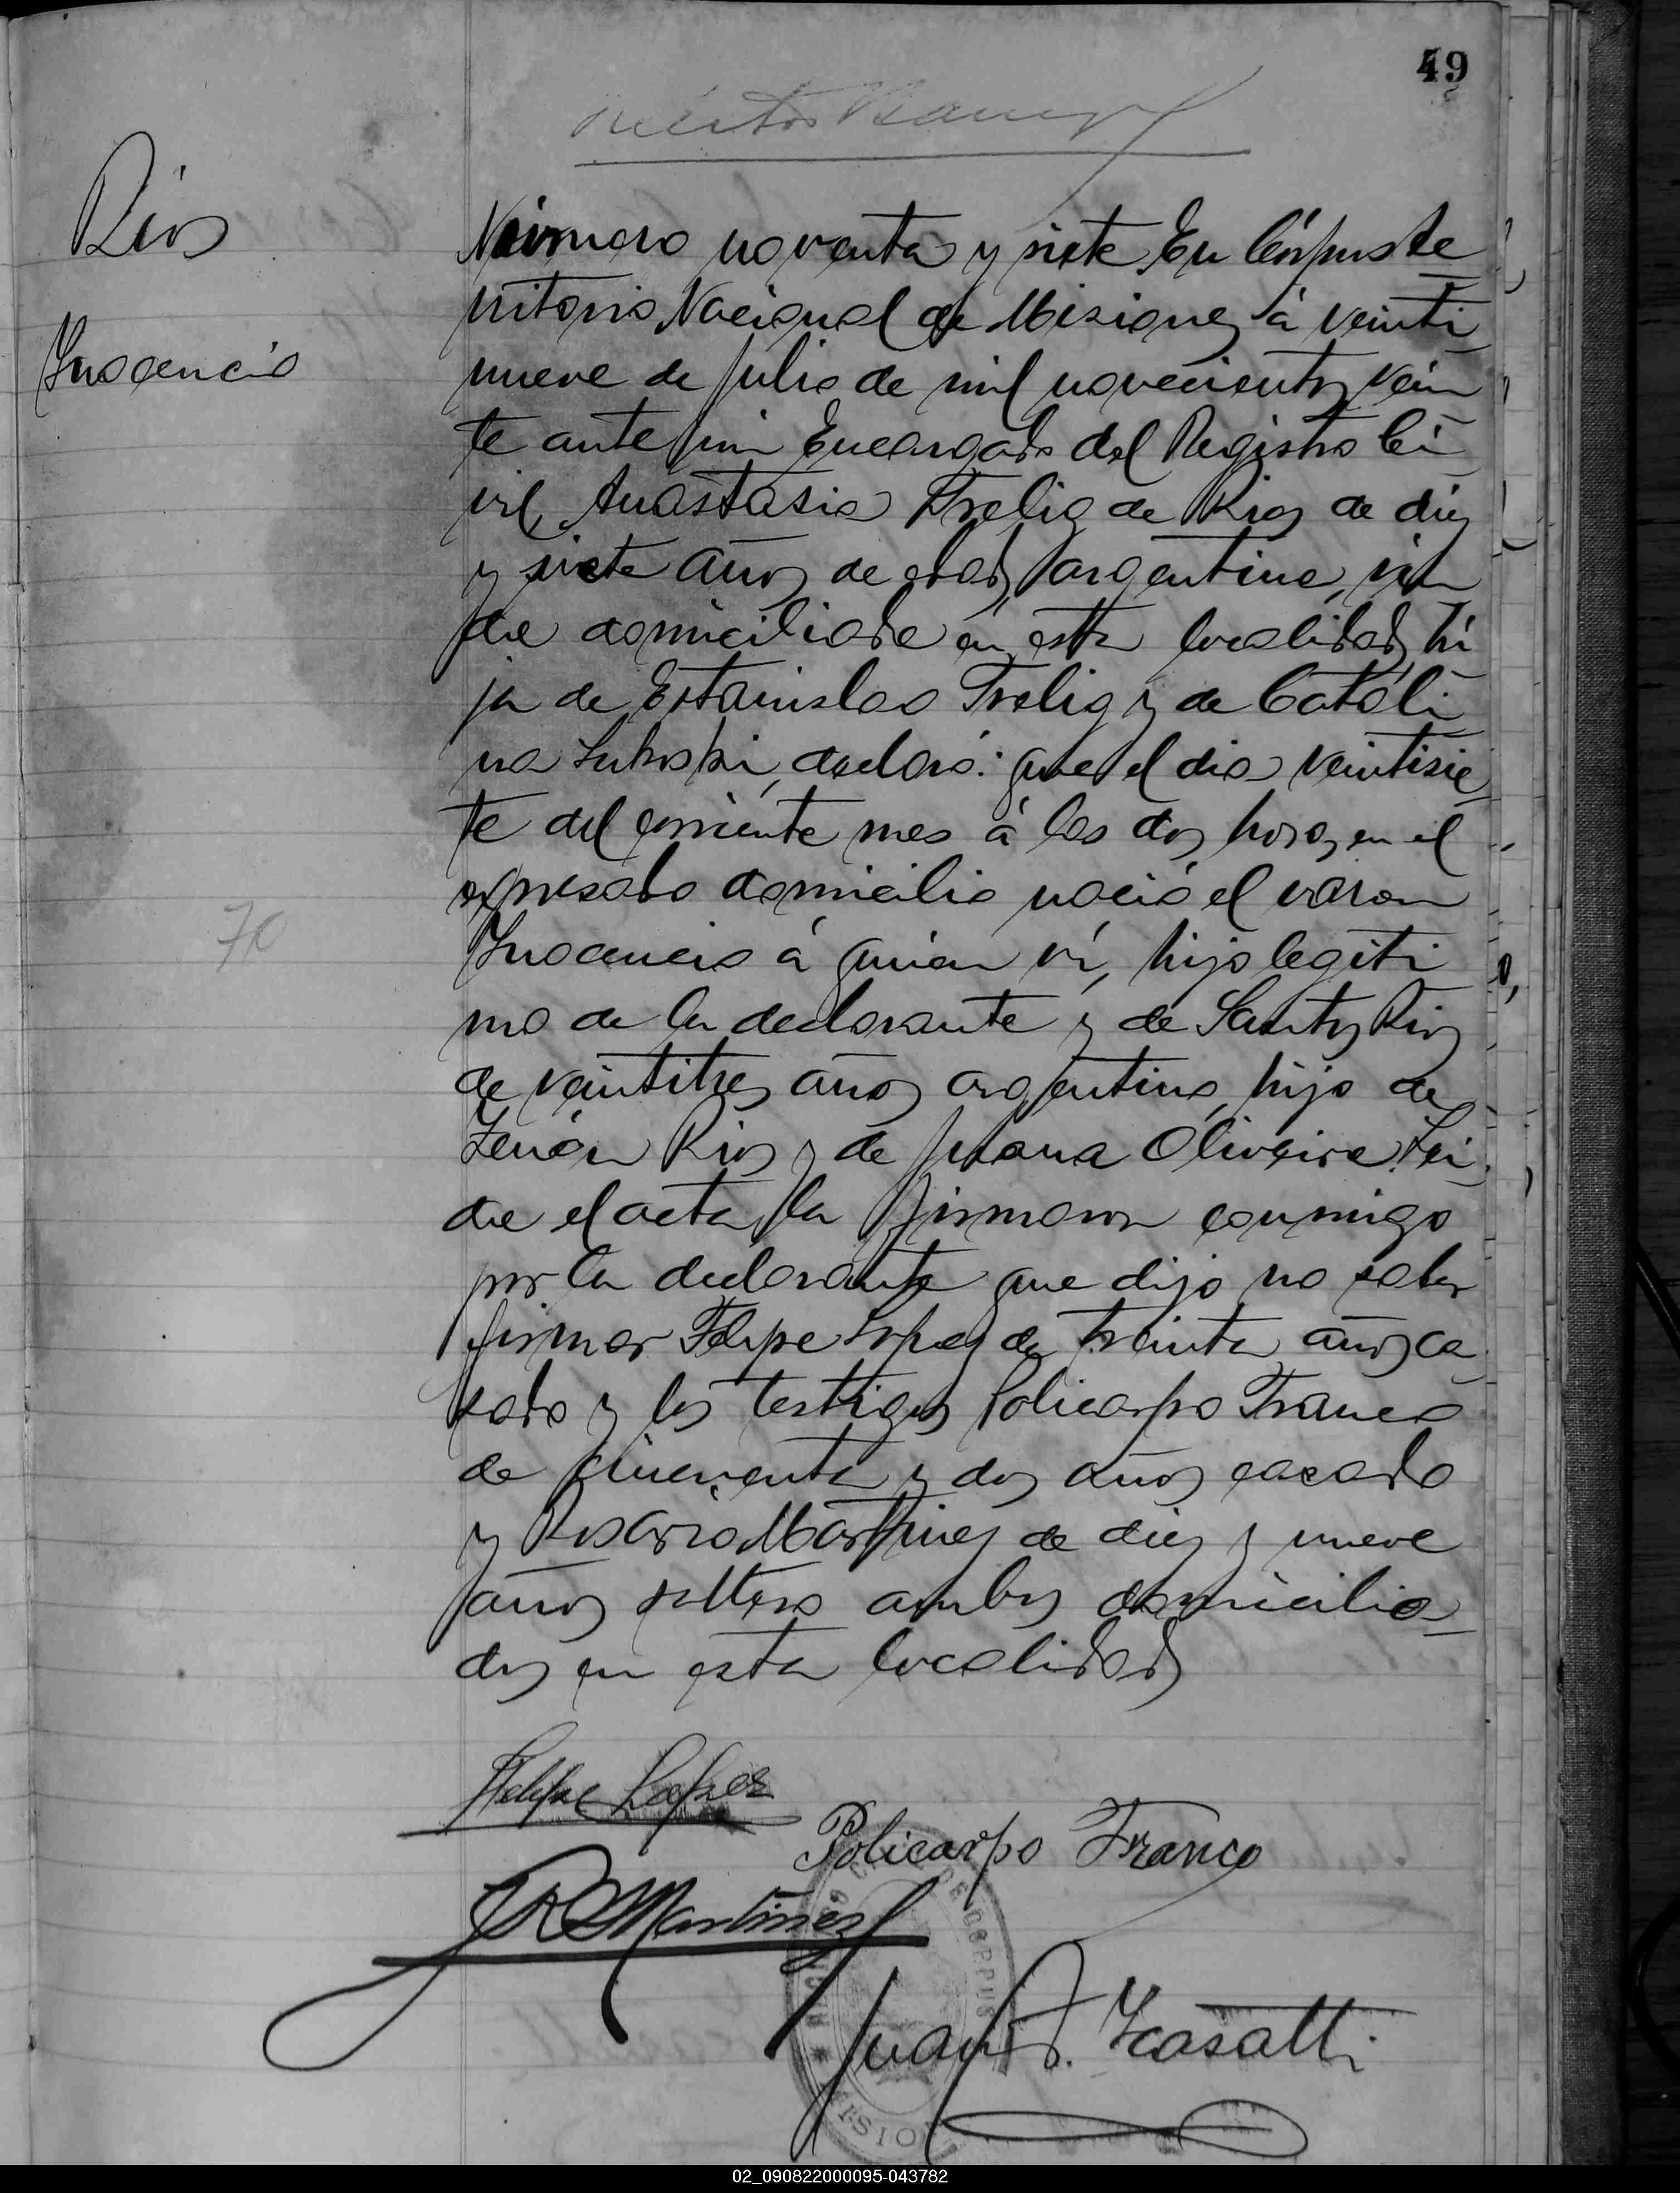 49
Rios
Inocencio
Número noventa y siete En Córpus Te
rritorio Nacional de Misiones á veinti
nueve de Julio de mil novecientos vein
te ante mi Encargado del Registro Ci
vil, Anastasia Trelig de Rios de diez
y siete años de edad, argentina, viu
da domiciliada en esta localidad, hi
ja de Estanislao Trelig y de Catali
na declaró: que el dia veintisie
te del corriente mes á las dos horas en el
expresado domicilio nació el varon
Inocencio á quien ví, hijo legiti
mo de la declarante y de Santos Rios
de veintitres años argentino, hijo de
Zenón Rios y de Juana Oliveira. Lei
da el acta, la firmaron conmigo
por la declarante que dijo no saber
firmar Felipe Lopez de treinta años ca
sado y los testigos Policarpo Franco
de cincuenta y dos años casado
y Rosario Martinez de diez y nueve
años soltero ambos domicilia
dos en esta localidad
70
Felipe Lopez
Policarpo Franco
R Martinez
Juan
02_090822000095-043782